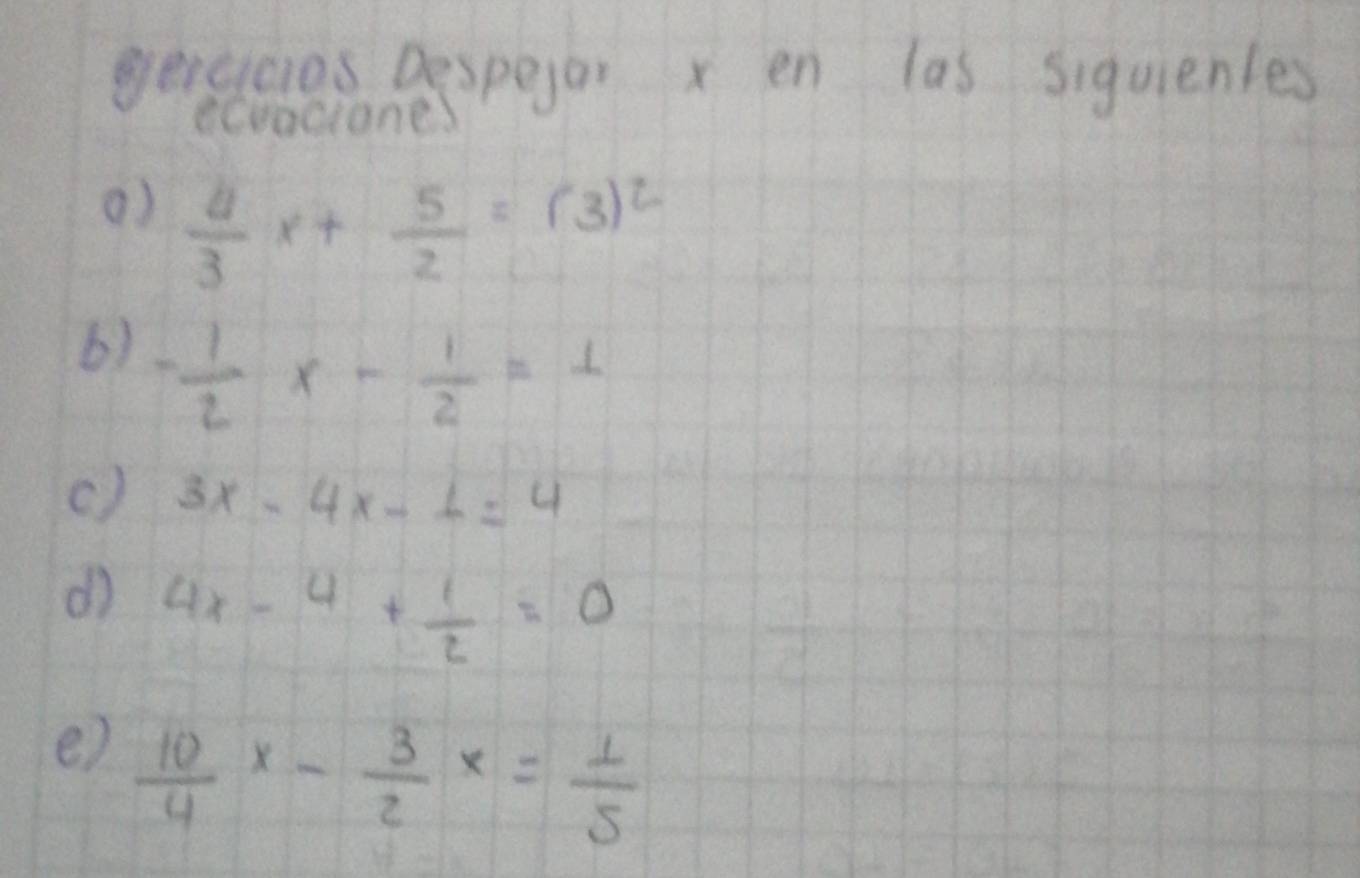 ejercicios Despejar x en las siguientes
ecuaciones
a) 4/3 x + 5/2 = (3)²
b) -1/2 x - 1/2 = 1
c) 3x - 4x - 1 = 4
d) 4x - 4 + 1/2 = 0
e) 10/4 x - 3/2 x = 1/5